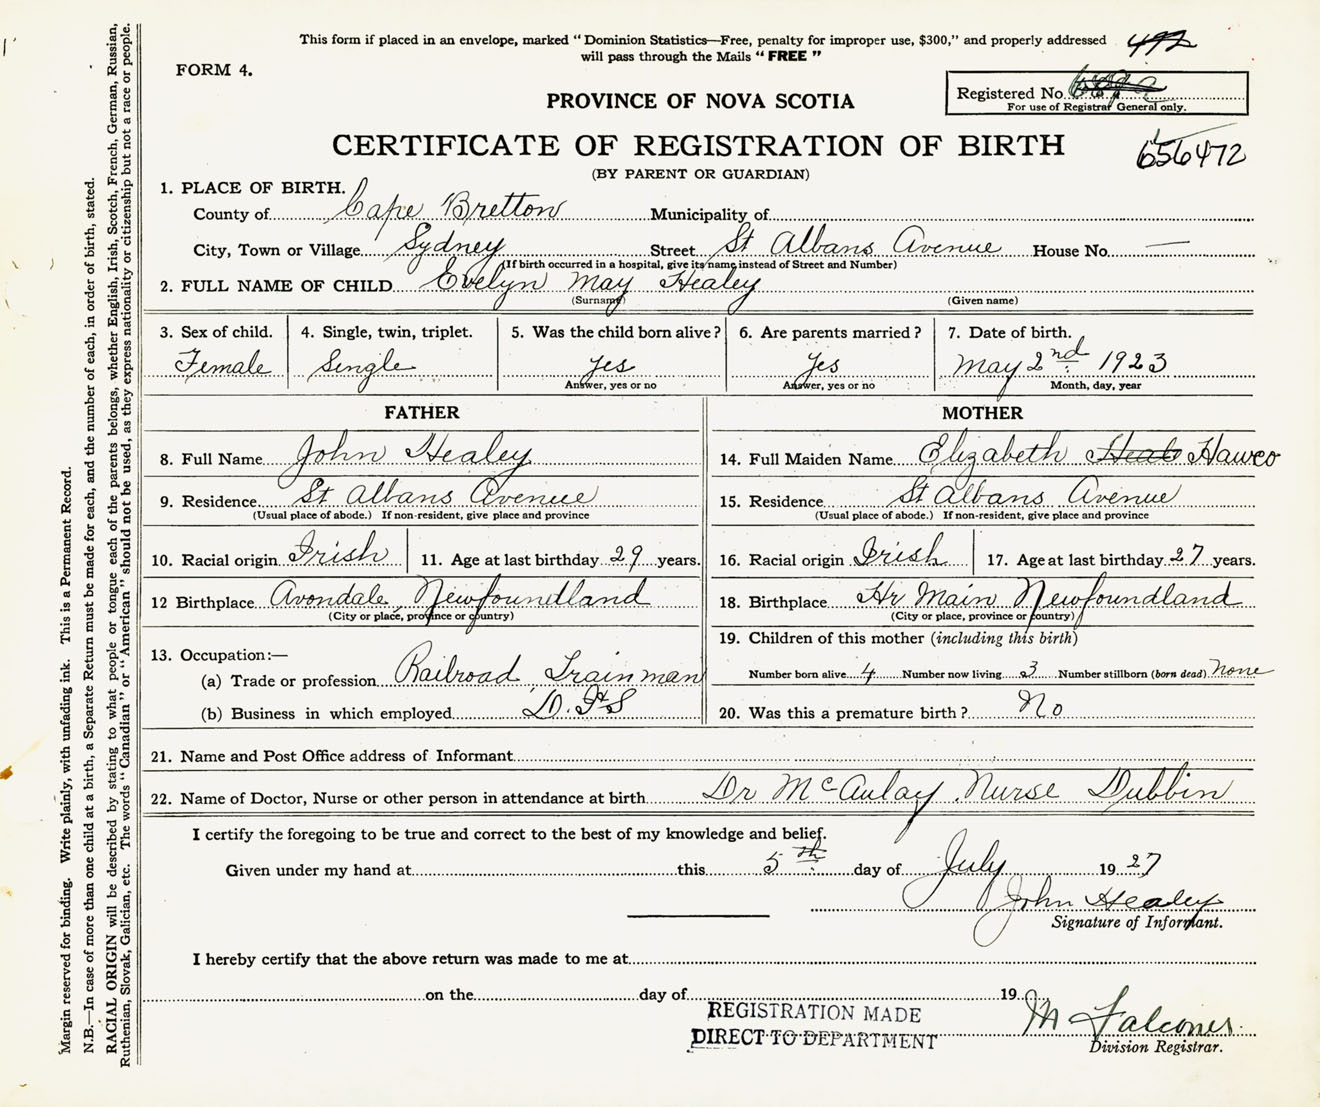 This form if placed in an envelope, marked "Dominion Statistics—Free, penalty for improper use, $300," and properly addressed
will pass through the Mails "FREE"
FORM 4.
PROVINCE OF NOVA SCOTIA
Registered No.
For use of Registrar General only.
CERTIFICATE OF REGISTRATION OF BIRTH
656472
(BY PARENT OR GUARDIAN)
1. PLACE OF BIRTH.
County of Cape Bretton Municipality of
City, Town or Village Sydney Street St Albans Avenue House No. —
(If birth occurred in a hospital, give its name instead of Street and Number)
2. FULL NAME OF CHILD Evelyn May Healey
(Surname) (Given name)
3. Sex of child. 4. Single, twin, triplet. 5. Was the child born alive? 6. Are parents married? 7. Date of birth.
Female Single yes yes May 2nd 1923
Answer, yes or no Answer, yes or no Month, day, year
FATHER MOTHER
8. Full Name John Healey 14. Full Maiden Name Elizabeth Heal Hawco
9. Residence St Albans Avenue 15. Residence St Albans Avenue
(Usual place of abode.) If non-resident, give place and province (Usual place of abode.) If non-resident, give place and province
10. Racial origin Irish 11. Age at last birthday 29 years. 16. Racial origin Irish 17. Age at last birthday 27 years.
12 Birthplace Avondale, Newfoundland 18. Birthplace Hr Main Newfoundland
(City or place, province or country) (City or place, province or country)
19. Children of this mother (including this birth)
13. Occupation:—
(a) Trade or profession Railroad Trainman Number born alive 4 Number now living 3 Number stillborn (born dead) none
(b) Business in which employed D. I & S 20. Was this a premature birth? No
21. Name and Post Office address of Informant
22. Name of Doctor, Nurse or other person in attendance at birth Dr McAulay Nurse Dubbin
I certify the foregoing to be true and correct to the best of my knowledge and belief.
Given under my hand at this 5th day of July 1927
John Healey
Signature of Informant.
I hereby certify that the above return was made to me at
on the day of 19
REGISTRATION MADE
DIRECT TO DEPARTMENT
M Falconer
Division Registrar.
Margin reserved for binding. Write plainly, with unfading ink. This is a Permanent Record.
N.B.—In case of more than one child at a birth, a Separate Return must be made for each, and the number of each, in order of birth, stated.
RACIAL ORIGIN will be described by stating to what people or tongue each of the parents belongs, whether English, Irish, Scotch, French, German, Russian,
Ruthenian, Slovak, Galician, etc. The words "Canadian" or "American" should not be used, as they express nationality or citizenship but not a race or people.